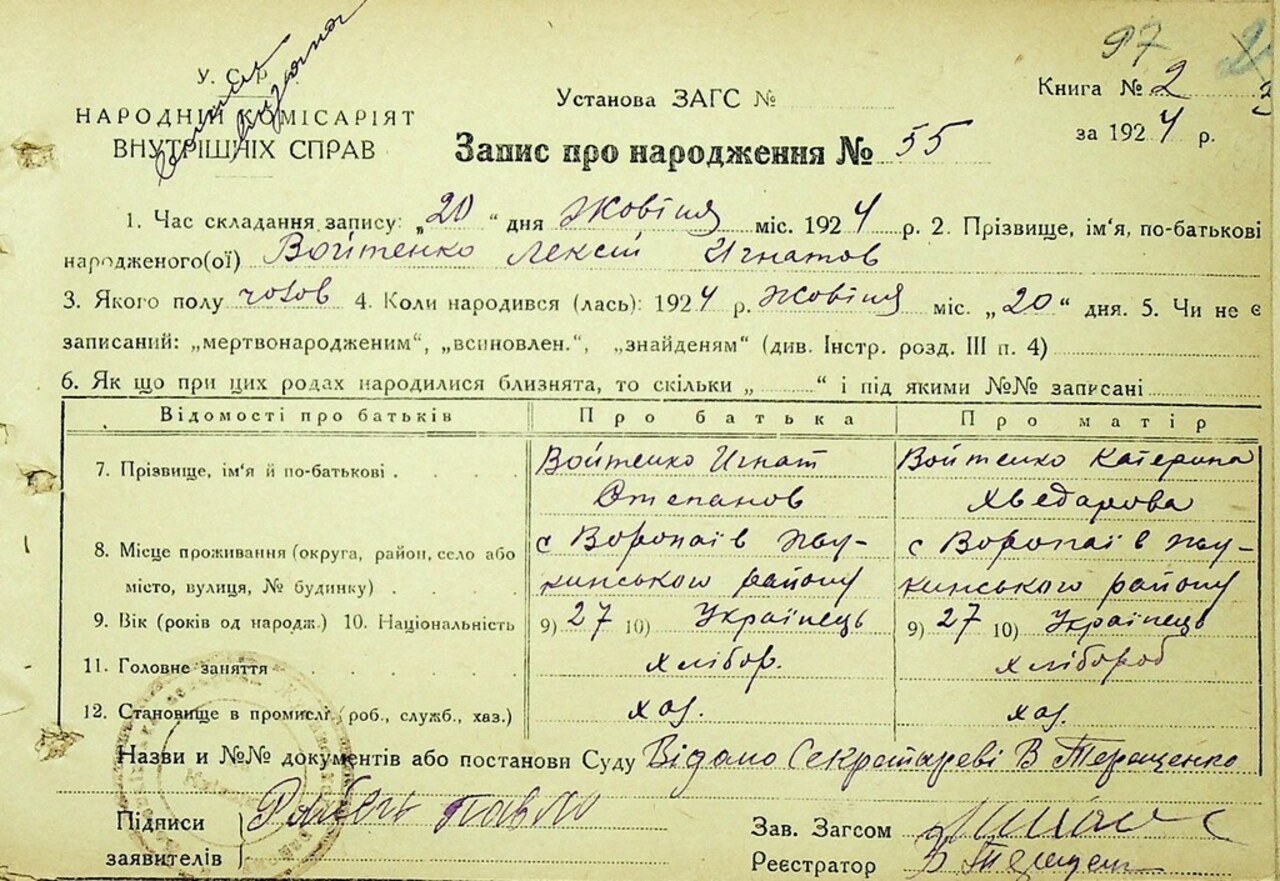 97
У. С.
НАРОДНІЙ КОМІСАРІЯТ
ВНУТРІШНІХ СПРАВ
Установа ЗАГС №
Книга № 2
за 1924 р.
Запис про народження № 55
1. Час складання запису: „20 “ дня Жовтня міс. 1924 р. 2. Прізвище, ім'я, по-батькові
народженого(ої) Войтенко Лексій Игнатов
3. Якого полу чолов 4. Коли народився (лась): 1924 р. Жовтня міс. „20“ дня. 5. Чи не є
записаний: „мертвонародженим“, „всиновлен.“, „знайденям“ (див. Інстр. розд. III п. 4)
6. Як що при цих родах народилися близнята, то скільки „ “ і під якими №№ записані
Відомості про батьків Про батька Про матір
7. Прізвище, ім'я й по-батькові . Войтенко Игнат Войтенко Катерина
Степанов Хведарова
8. Місце проживання (округа, район, село або с Воропаїв с Воропаїв
місто, вулиця, № будинку) . району району
9. Вік (років од народж.) 10. Національність 9) 27 10) Українець 9) 27 10) Українець
11. Головне заняття хлібор. хлібороб
12. Становище в промислі (роб., служб., хаз.) хаз. хаз.
Назви и №№ документів або постанови Суду Відано Секретареві В Терещенко
Підписи Павло
заявителів
Зав. Загсом
Реєстратор В